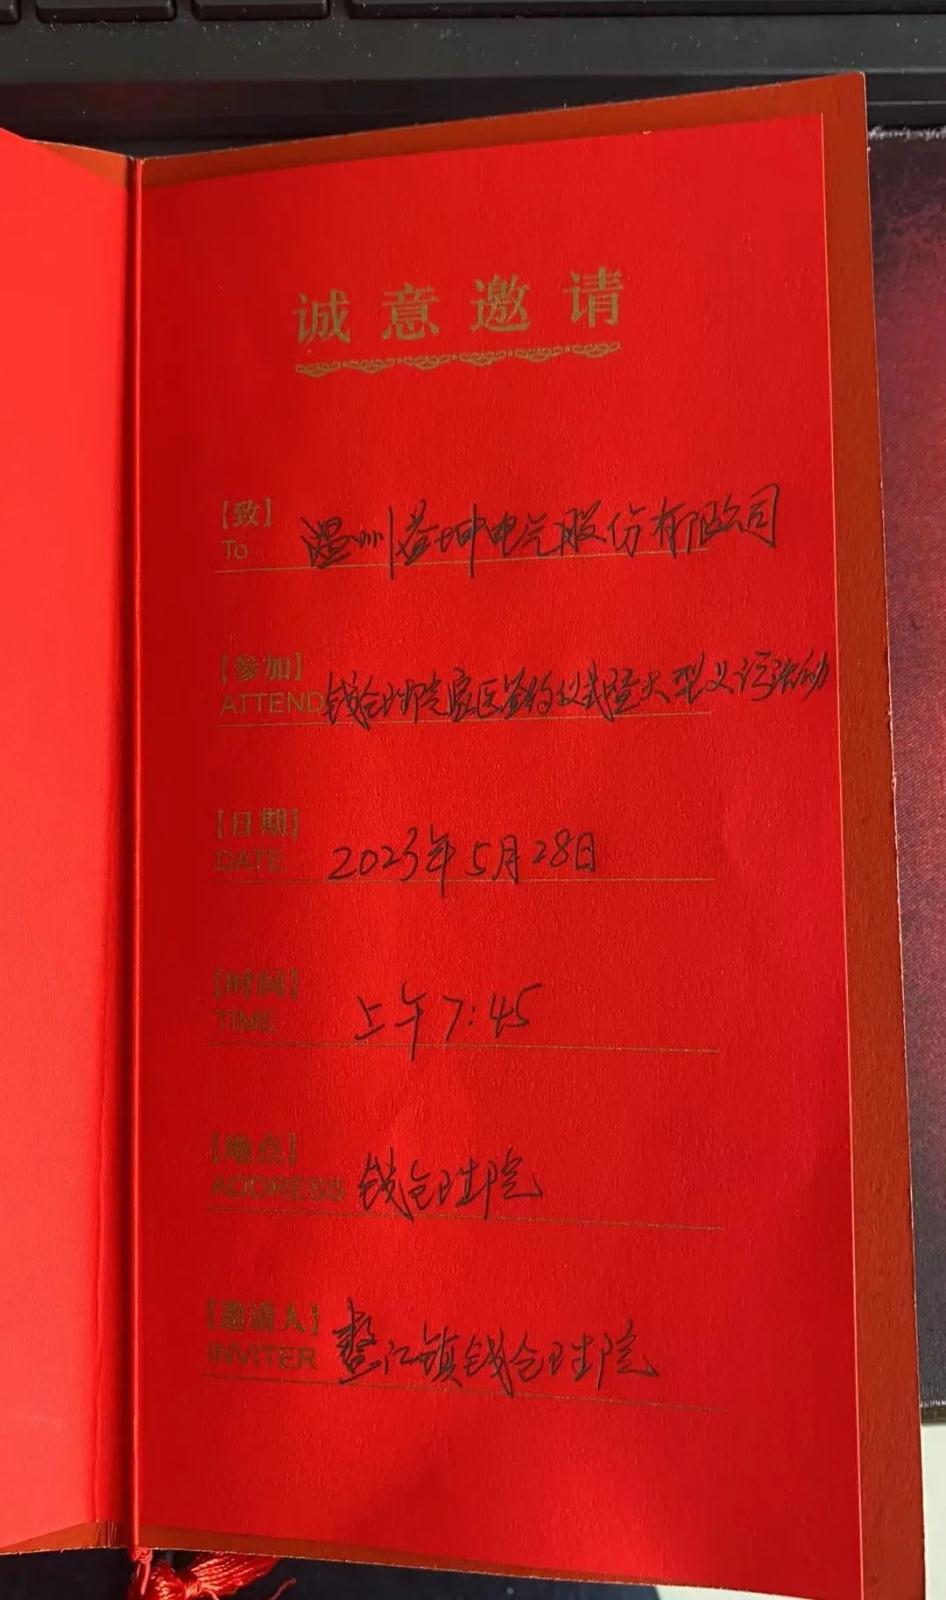 诚意邀请
【致】 温州益坤电气股份有限公司
To
【参加】
ATTEND 钱仓卫生院家医签约仪式暨大型义诊活动
【日期】
DATE 2023年5月28日
【时间】
TIME 上午7:45
【地点】
ADDRESS 钱仓卫生院
【邀请人】
INVITER 鳌江镇钱仓卫生院